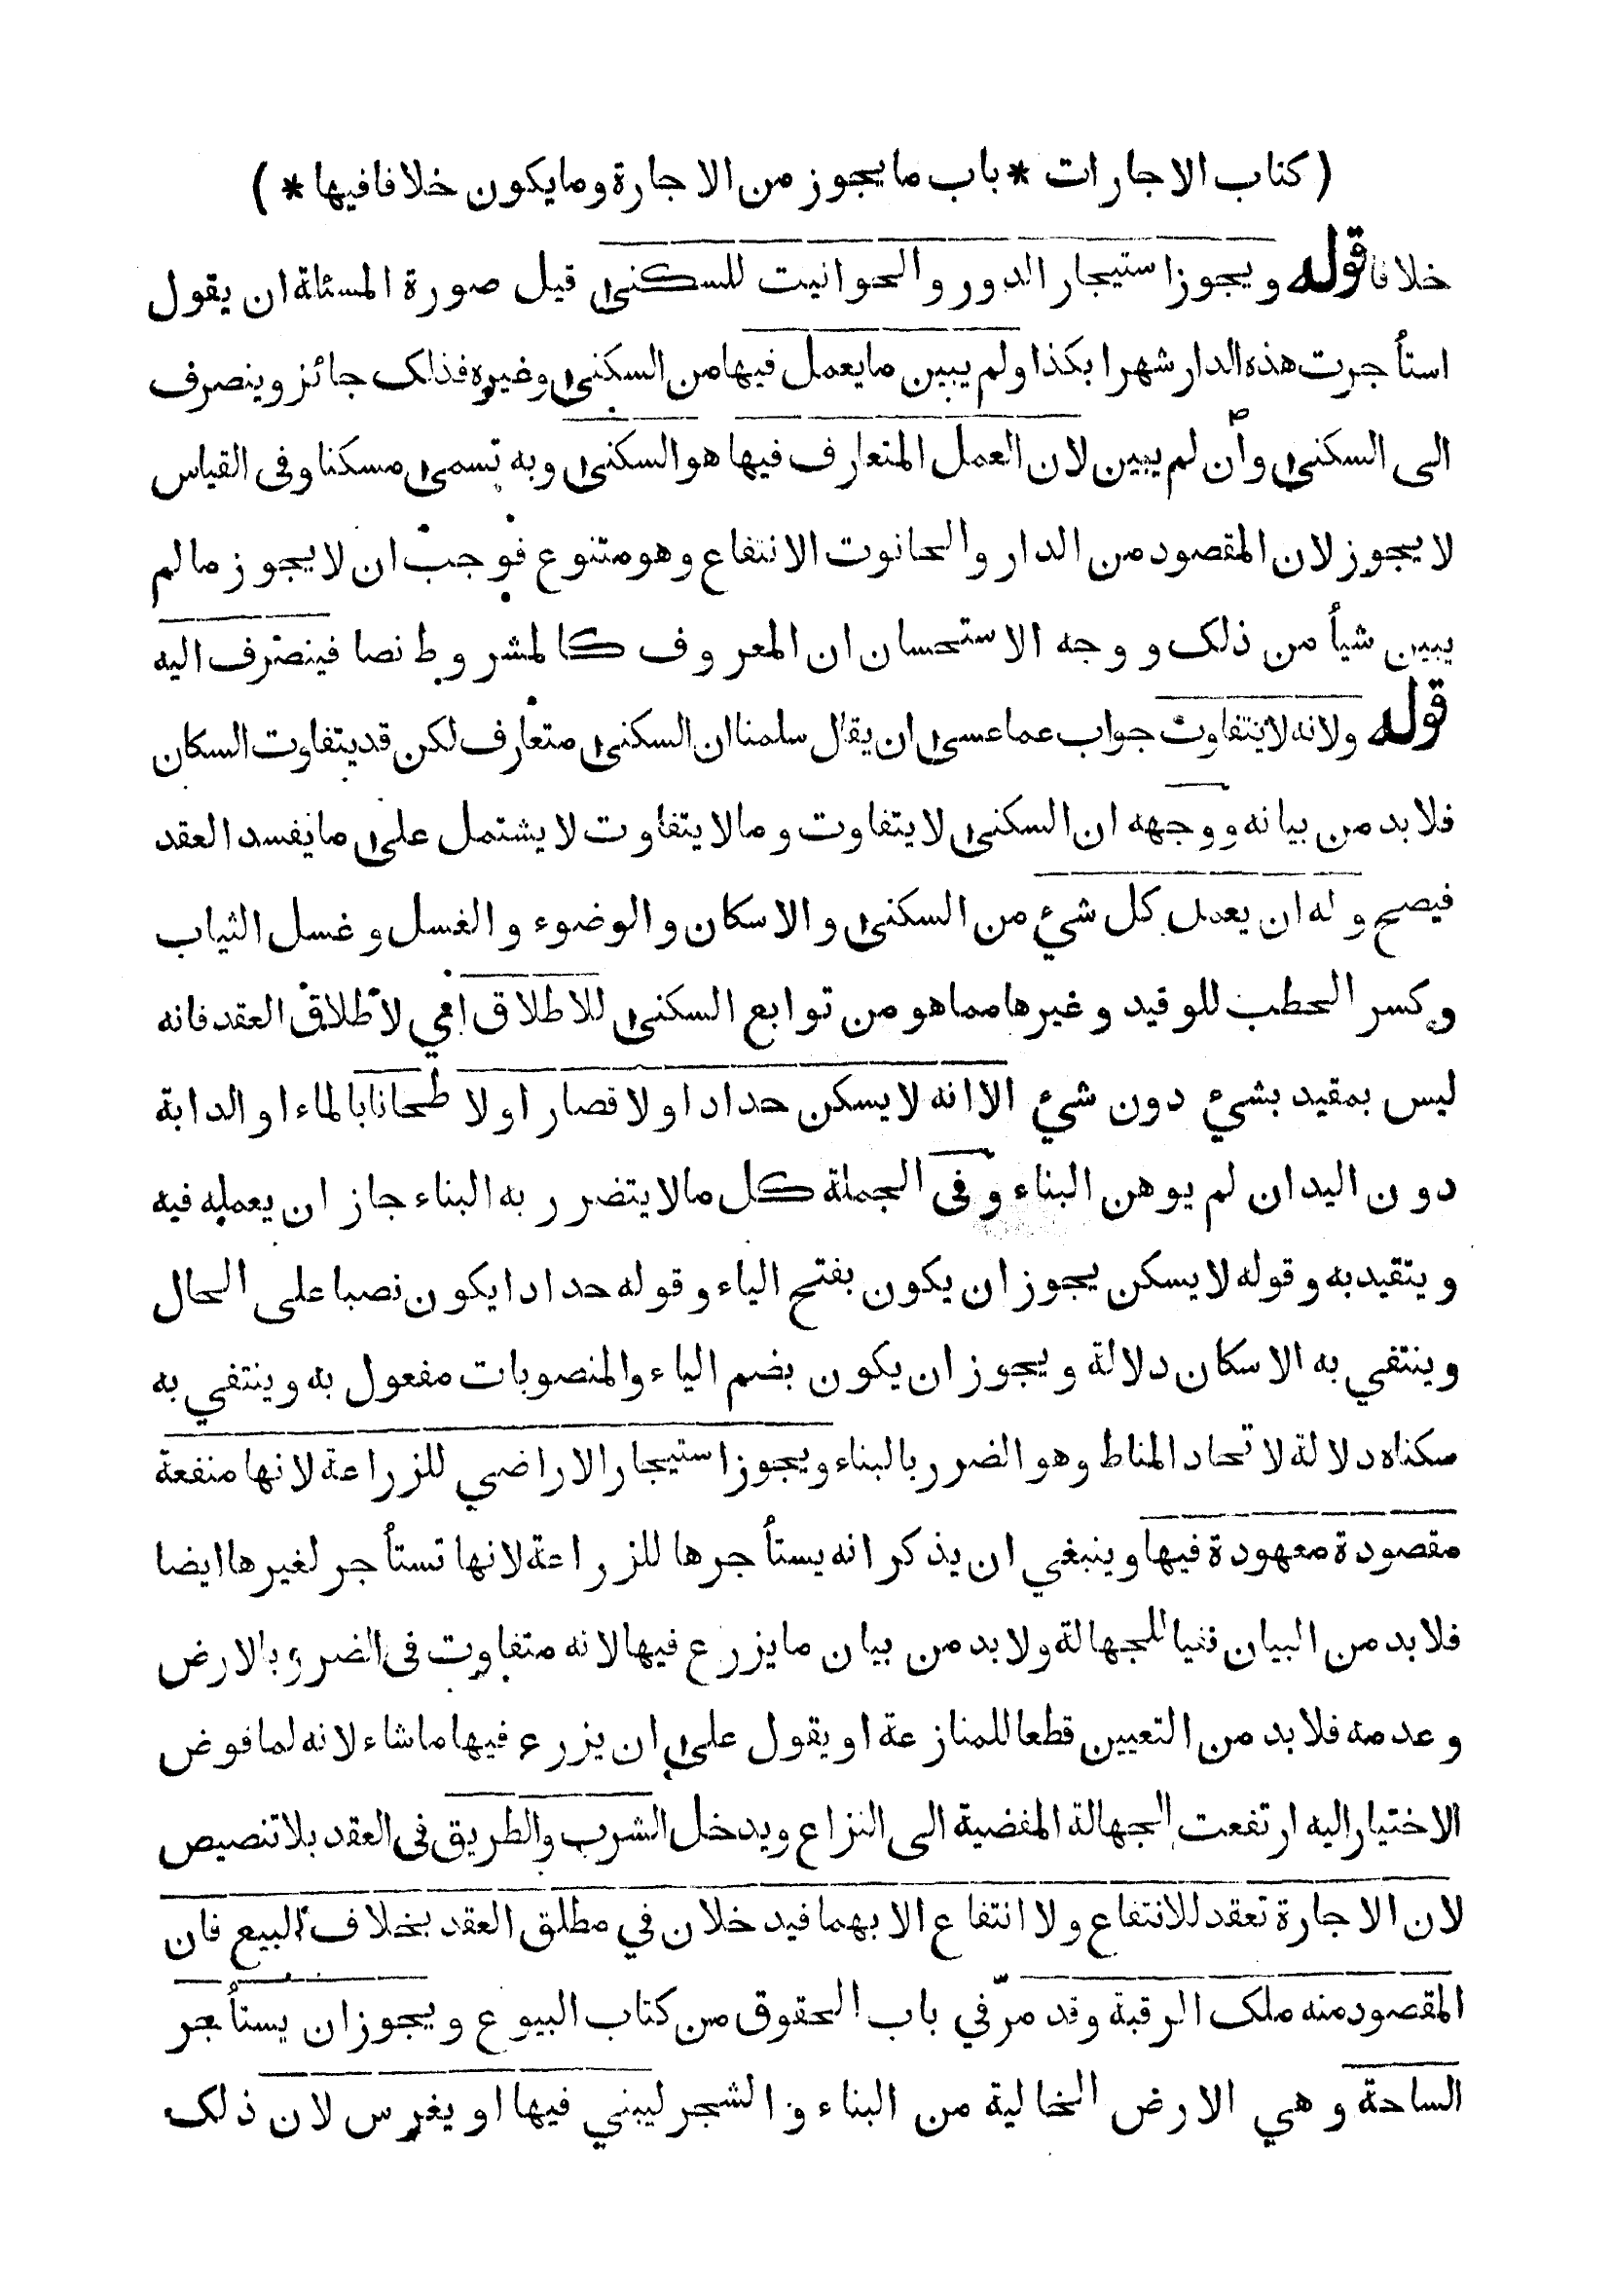 ( كتاب الاجارات * باب ما يجوز من الاجارة وما يكون خلافا فيها * )
خلافا قوله ويجوز استيجار الدور والحوانيت للسكنى قيل صورة المسئلة ان يقول
استأجرت هذه الدار شهرا بكذا ولم يبين ما يعمل فيها من السكنى وغيره فذلك جائز وينصرف
الى السكنى وان لم يبين لان العمل المتعارف فيها هو السكنى وبه تسمى مسكنا وفى القياس
لا يجوز لان المقصود من الدار والحانوت الانتفاع وهو متنوع فوجب ان لا يجوز ما لم
يبين شيأ من ذلك ووجه الاستحسان ان المعروف كالمشروط نصا فينصرف اليه
قوله ولانه لا يتفاوت جواب عما عسى ان يقال سلمنا ان السكنى متعارف لكن قد يتفاوت السكان
فلا بد من بيانه ووجهه ان السكنى لا يتفاوت وما لا يتفاوت لا يشتمل على ما يفسد العقد
فيصح وله ان يعمل كل شيء من السكنى والاسكان والوضوء والغسل وغسل الثياب
وكسر الحطب للوقيد وغيرها مما هو من توابع السكنى للاطلاق اي لاطلاق العقد فانه
ليس بمقيد بشيء دون شيء الا انه لا يسكن حدادا ولا قصارا ولا طحانا بالماء او الدابة
دون اليد ان لم يوهن البناء وفى الجملة كل ما لا يتضرر به البناء جاز ان يعمله فيه
ويتقيد به وقوله لا يسكن يجوز ان يكون بفتح الياء وقوله حدادا يكون نصبا على الحال
وينتفي به الاسكان دلالة ويجوز ان يكون بضم الياء والمنصوبات مفعول به وينتفي به
سكناه دلالة لاتحاد المناط وهو الضرر بالبناء ويجوز استيجار الاراضي للزراعة لانها منفعة
مقصودة معهودة فيها وينبغي ان يذكر انه يستأجرها للزراعة لانها تستأجر لغيرها ايضا
فلا بد من البيان نفيا للجهالة ولا بد من بيان ما يزرع فيها لانه متفاوت فى الضرر بالارض
وعدمه فلا بد من التعيين قطعا للمنازعة او يقول على ان يزرع فيها ما شاء لانه لما فوض
الاختيار اليه ارتفعت الجهالة المفضية الى النزاع ويدخل الشرب والطريق فى العقد بلا تنصيص
لان الاجارة تعقد للانتفاع ولا انتفاع الا بهما فيدخلان في مطلق العقد بخلاف البيع فان
المقصود منه ملك الرقبة وقد مرّ في باب الحقوق من كتاب البيوع ويجوز ان يستأجر
الساحة وهي الارض الخالية من البناء والشجر ليبني فيها او يغرس لان ذلك